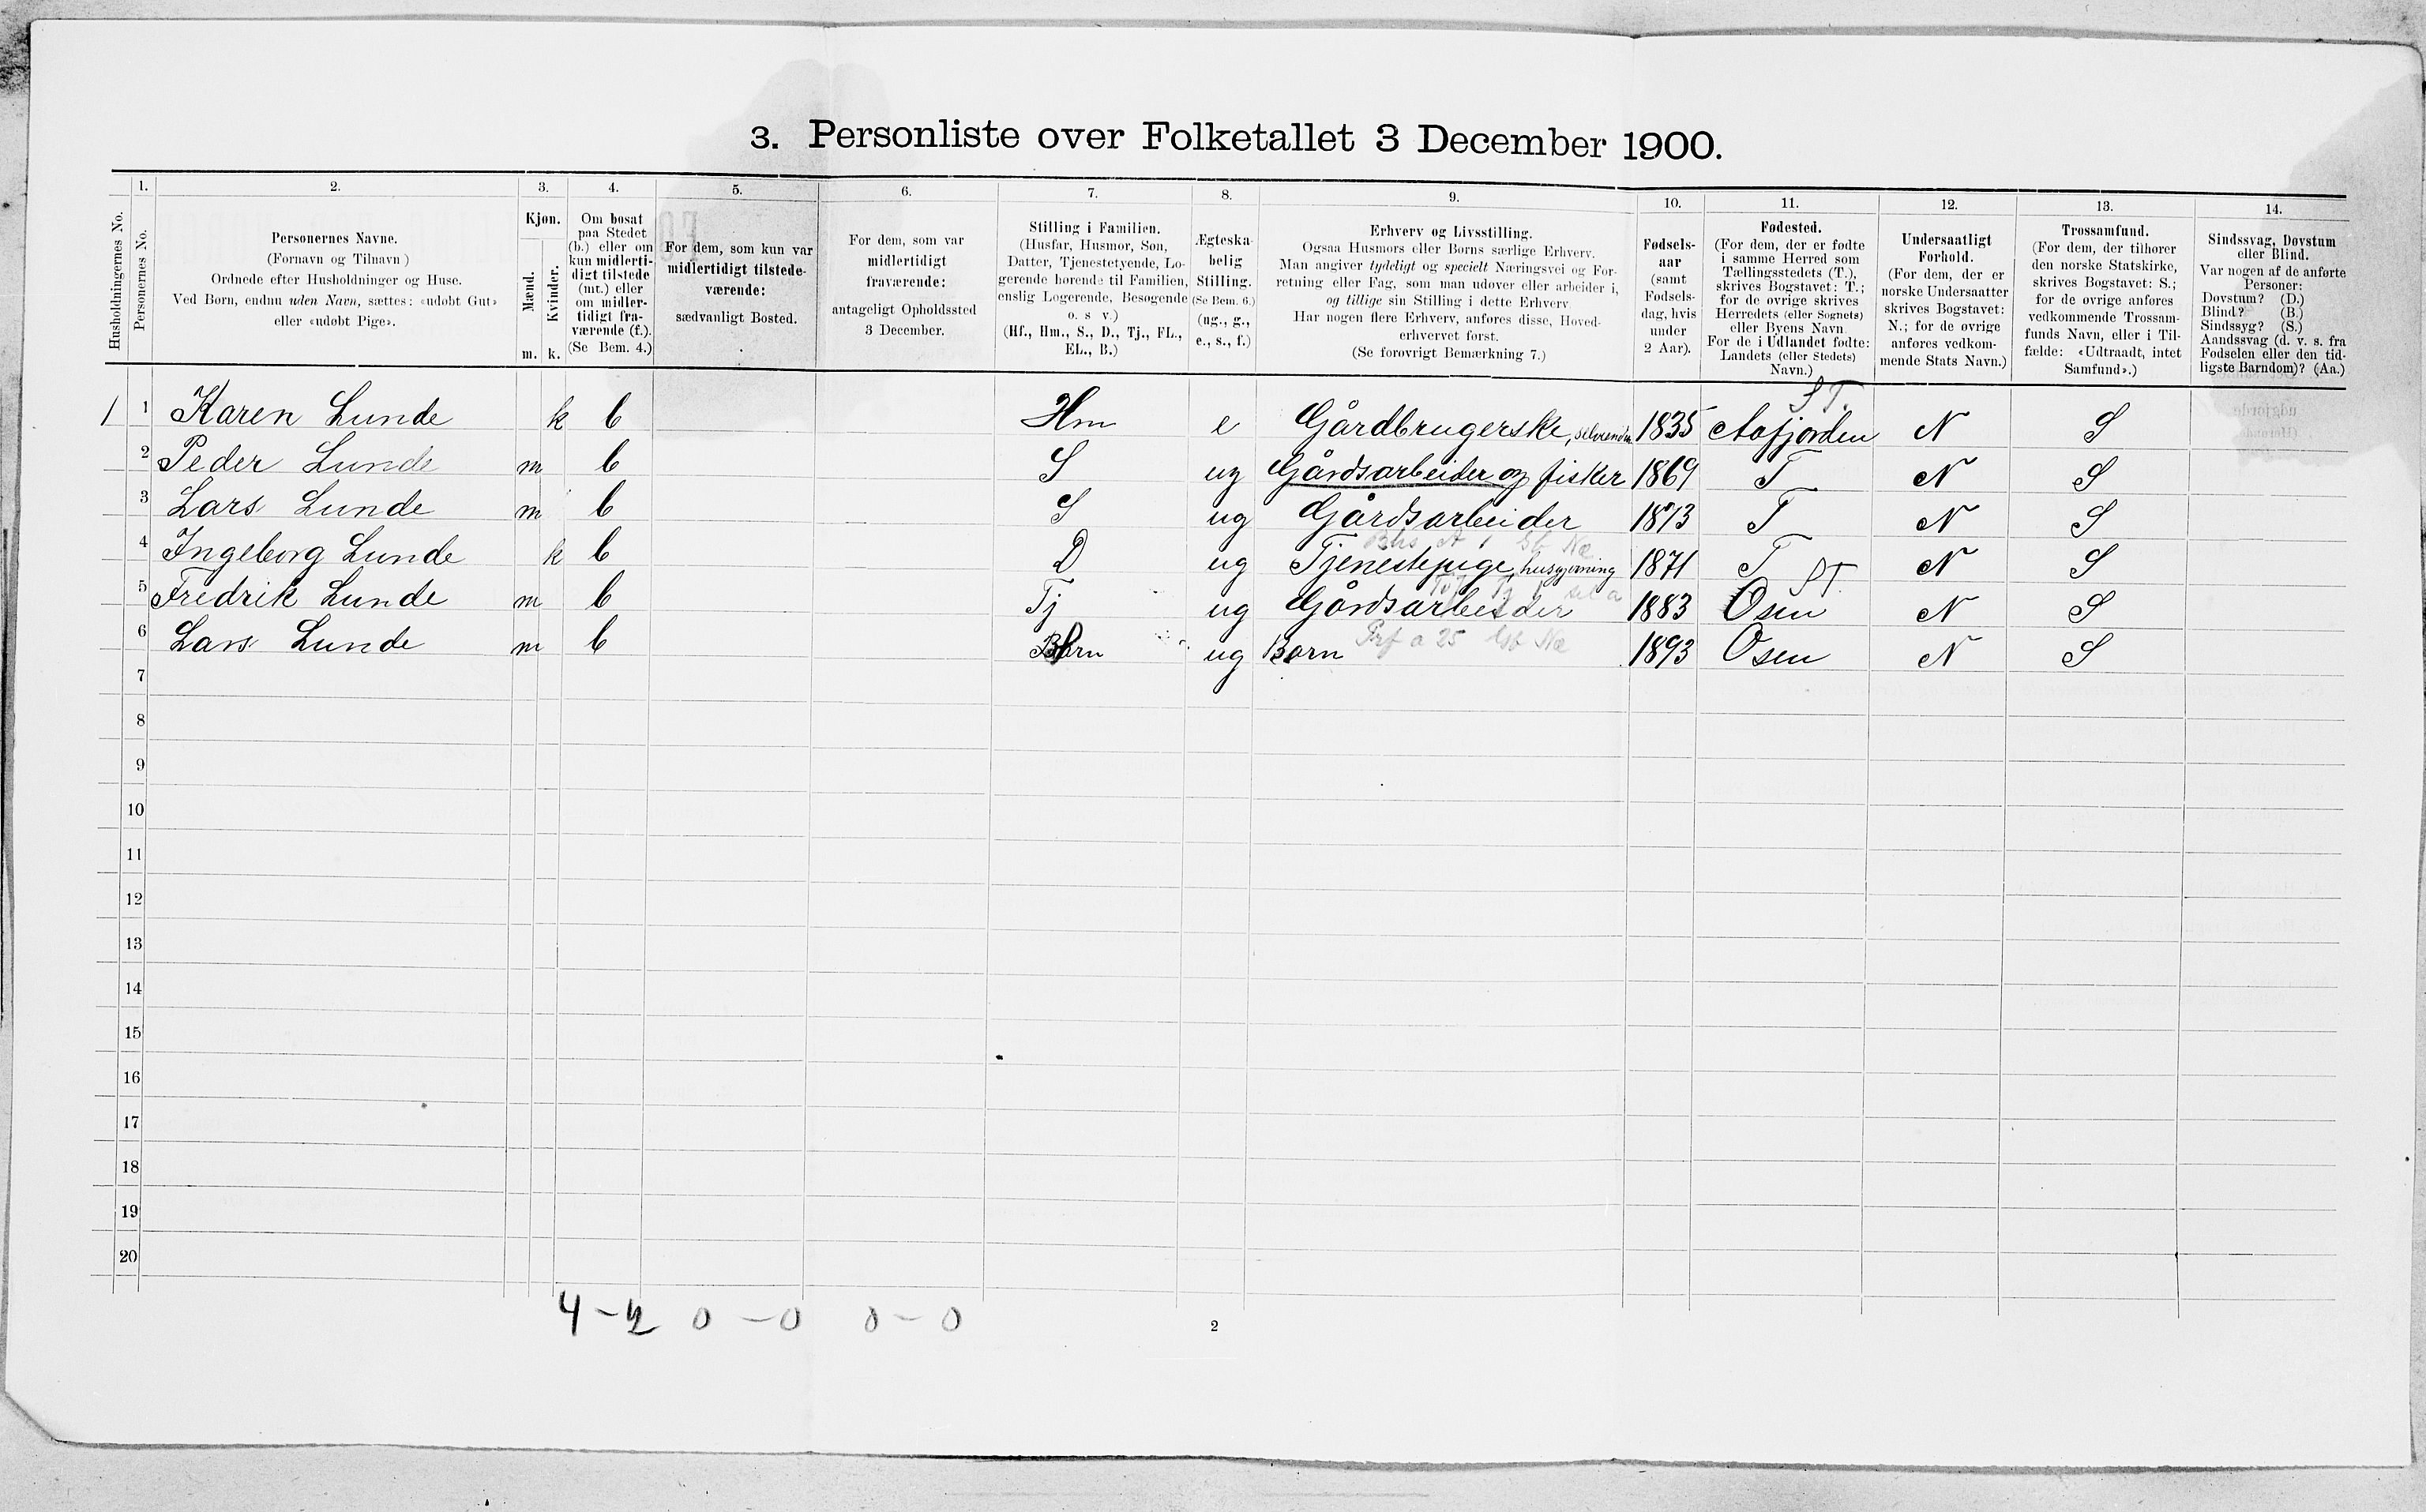 3. Personliste over Folketallet 3 December 1900.
1. 2. 3. 4. 5. 6. 7. 8. 9. 10. 11. 12. 13. 14.
Husholdningernes No.
Personernes No.
Personernes Navne.
(Fornavn og Tilnavn)
Ordnede efter Husholdninger og Huse.
Ved Børn, endnu uden Navn, sættes: «udøbt Gut»
eller «udøbt Pige».
Kjøn.
Mænd.
Kvinder.
m. k.
Om bosat
paa Stedet
(b.) eller om
kun midlerti-
digt tilstede
(mt.) eller
om midler-
tidigt fra-
værende (f.).
(Se Bem. 4.)
For dem, som kun var
midlertidigt tilstede-
værende:
sædvanligt Bosted.
For dem, som var
midlertidigt
fraværende:
antageligt Opholdssted
3 December.
Stilling i Familien.
(Husfar, Husmor, Søn,
Datter, Tjenestetyende, Lo-
gerende hørende til Familien,
enslig Logerende, Besøgende
o. s v.)
(Hf., Hm., S., D., Tj., FL.,
EL., B.)
Ægteska-
belig
Stilling.
(Se Bem. 6.)
(ug., g.,
e., s., f.)
Erhverv og Livsstilling.
Ogsaa Husmors eller Børns særlige Erhverv.
Man angiver tydeligt og specielt Næringsvei og For-
retning eller Fag, som man udøver eller arbeider i,
og tillige sin Stilling i dette Erhverv
Har nogen flere Erhverv, anføres disse, Hoved-
erhvervet først.
(Se forøvrigt Bemærkning 7.)
Fødsels-
aar
(samt
Fødsels-
dag, hvis
under
2 Aar).
Fødested.
(For dem, der er fødte
i samme Herred som
Tællingsstedets (T.),
skrives Bogstavet: T.;
for de øvrige skrives
Herredets (eller Sognets)
eller Byens Navn
For de i Udlandet fødte:
Landets (eller Stedets)
Navn.)
Undersaatligt
Forhold.
(For dem, der er
norske Undersaatter
skrives Bogstavet:
N.; for de øvrige
anføres vedkom-
mende Stats Navn.)
Trossamfund.
(For dem, der tilhører
den norske Statskirke,
skrives Bogstavet: S.;
for de øvrige anføres
vedkommende Trossam-
funds Navn, eller i Til-
fælde: «Udtraadt, intet
Samfund».)
Sindssvag, Døvstum
eller Blind.
Var nogen af de anførte
Personer:
Døvstum? (D.)
Blind? (B.)
Sindssyg? (S.)
Aandssvag (d. v. s. fra
Fødselen eller den tid-
ligste Barndom)? (Aa.)
ST.
1 1 Karen Lunde k b Hm e Gårdbrugerske, selveiende 1835 Aafjorden N S
2 Peder Lunde m b S ug Gårdsarbeider og fisker 1869 T N S
3 Lars Lunde m b S ug Gårdsarbeider 1873 T N S
4 Ingeborg Lunde k b D ug Tjenestepige, husgjerning 1871 T N S
ST.
5 Fredrik Lunde m b Tj ug Gårdsarbeider 1883 Osen N S
6 Lars Lunde m b Barn ug Barn 1893 Osen N S
7
8
9
10
11
12
13
14
15
16
17
18
19
20
4 - 2 0 - 0 0 - 0
2